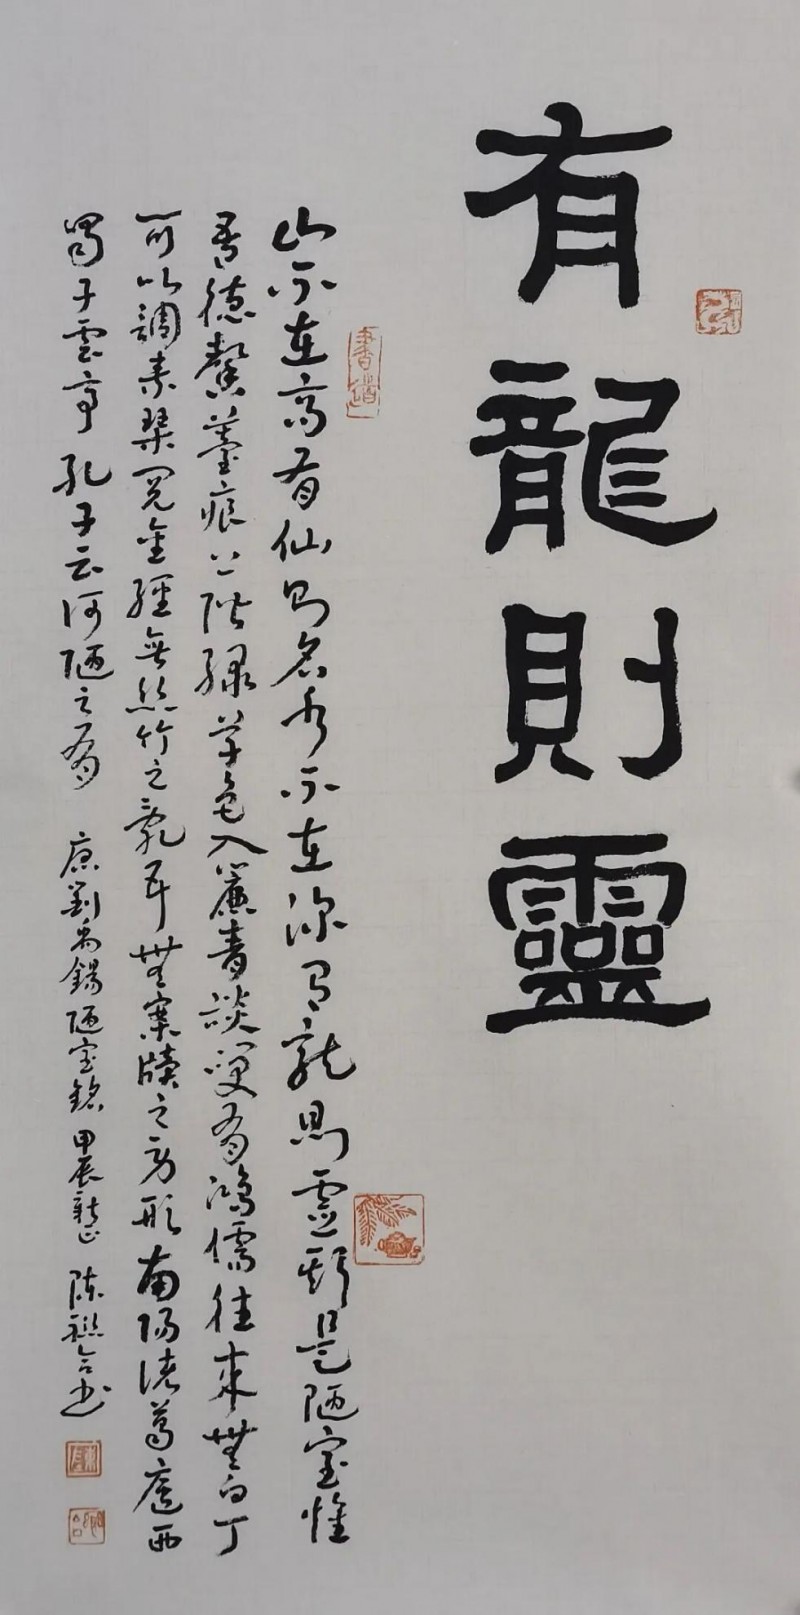 有龍則靈
山不在高有仙則名水不在深有龍則靈斯是陋室惟
吾德馨薹痕上階綠草色入簾青談笑有鴻儒往來無白丁
可以調素琴閱金經無絲竹之亂耳無案牘之勞形南陽诸葛廬西
蜀子雲亭孔子云何陋之有 唐劉禹錫陋室銘 甲辰龍 陈聯合书
書道